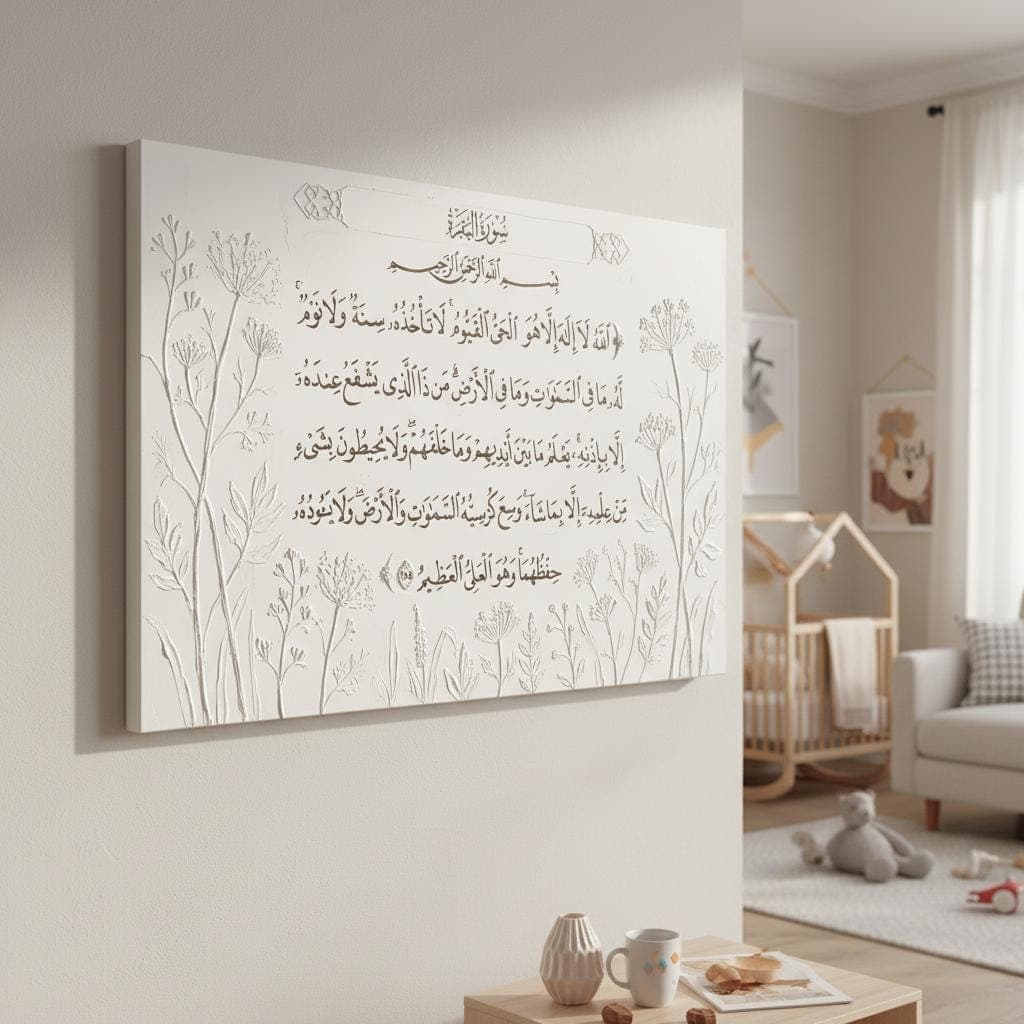 سُورَةُ الْبَقَرَةِ
بِسْمِ اللَّهِ الرَّحْمَٰنِ الرَّحِيمِ
اللَّهُ لَا إِلَٰهَ إِلَّا هُوَ الْحَيُّ الْقَيُّومُ ۚ لَا تَأْخُذُهُ سِنَةٌ وَلَا نَوْمٌ ۚ
لَّهُ مَا فِي السَّمَاوَاتِ وَمَا فِي الْأَرْضِ ۗ مَن ذَا الَّذِي يَشْفَعُ عِندَهُ
إِلَّا بِإِذْنِهِ ۚ يَعْلَمُ مَا بَيْنَ أَيْدِيهِمْ وَمَا خَلْفَهُمْ ۖ وَلَا يُحِيطُونَ بِشَيْءٍ
مِّنْ عِلْمِهِ إِلَّا بِمَا شَاءَ ۚ وَسِعَ كُرْسِيُّهُ السَّمَاوَاتِ وَالْأَرْضَ ۖ وَلَا يَئُودُهُ
حِفْظُهُمَا ۚ وَهُوَ الْعَلِيُّ الْعَظِيمُ ﴿٢٥٥﴾